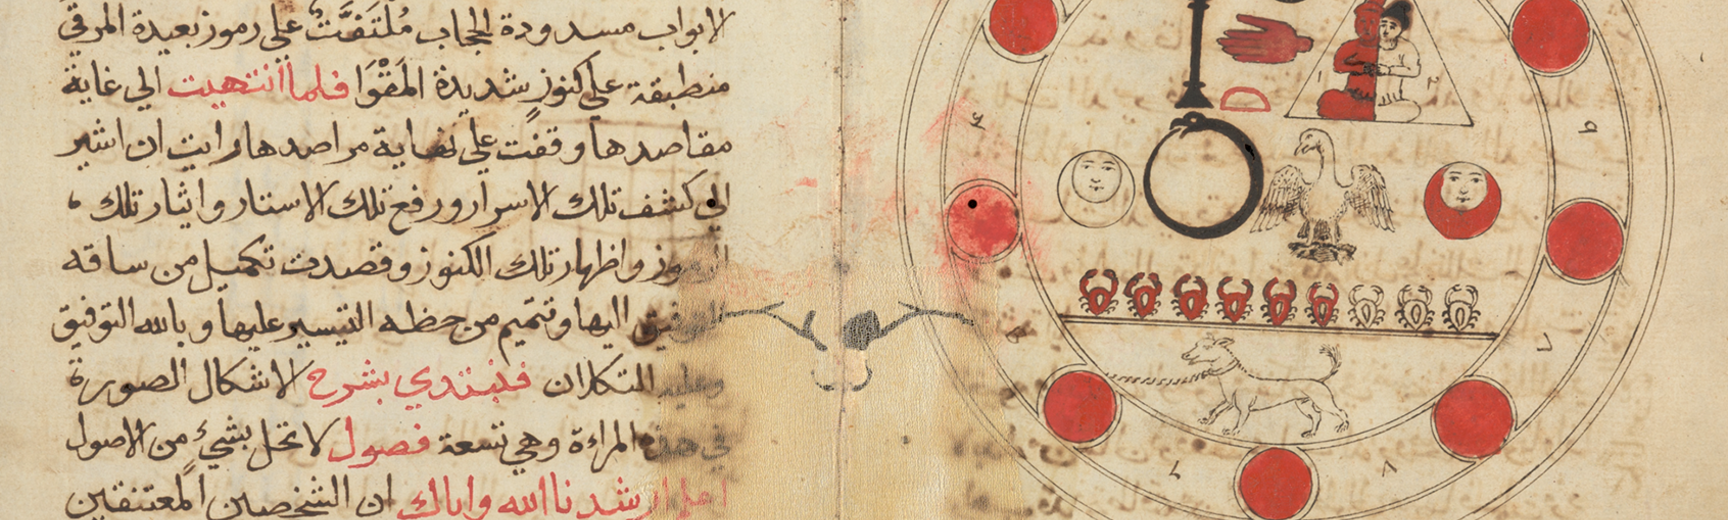 الابواب مسدودة الحجاب ملتفتَّ علي رموز بعيدة المرقي
منطبقة علي كنوز شديدة المَقْوَا فلما انتهيت الي غاية
مقاصدها وقفت علي نهاية مراصدها رايت ان اشير
الي كشف تلك الاسرار ورفع تلك الاستار واثار تلك
واظهار تلك الكنوز وقصدت تكميل من ساقه
اليها وتتميم من حظه التيسير عليها وبالله التوفيق
وعليه التكلان فلنبتدي بشرح الاشكال الصورة
في هذه المراة وهي تسعة فصول لا تخل بشيء من الاصول
اعلم ارشدنا الله واياك ان الشخصين المعتنقين